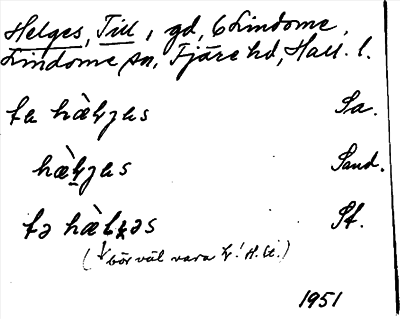 Helges, Till, 1 gd, 6 Lindome,
Lindome sn, Fjäre hd, Hall. l.
ta hæ̀ɫjas Sa.
hæ̀ɫjas Sand.
tə hæ̀ɫɡəs St.
(bör väl vara ɫ! H.U.)
1951